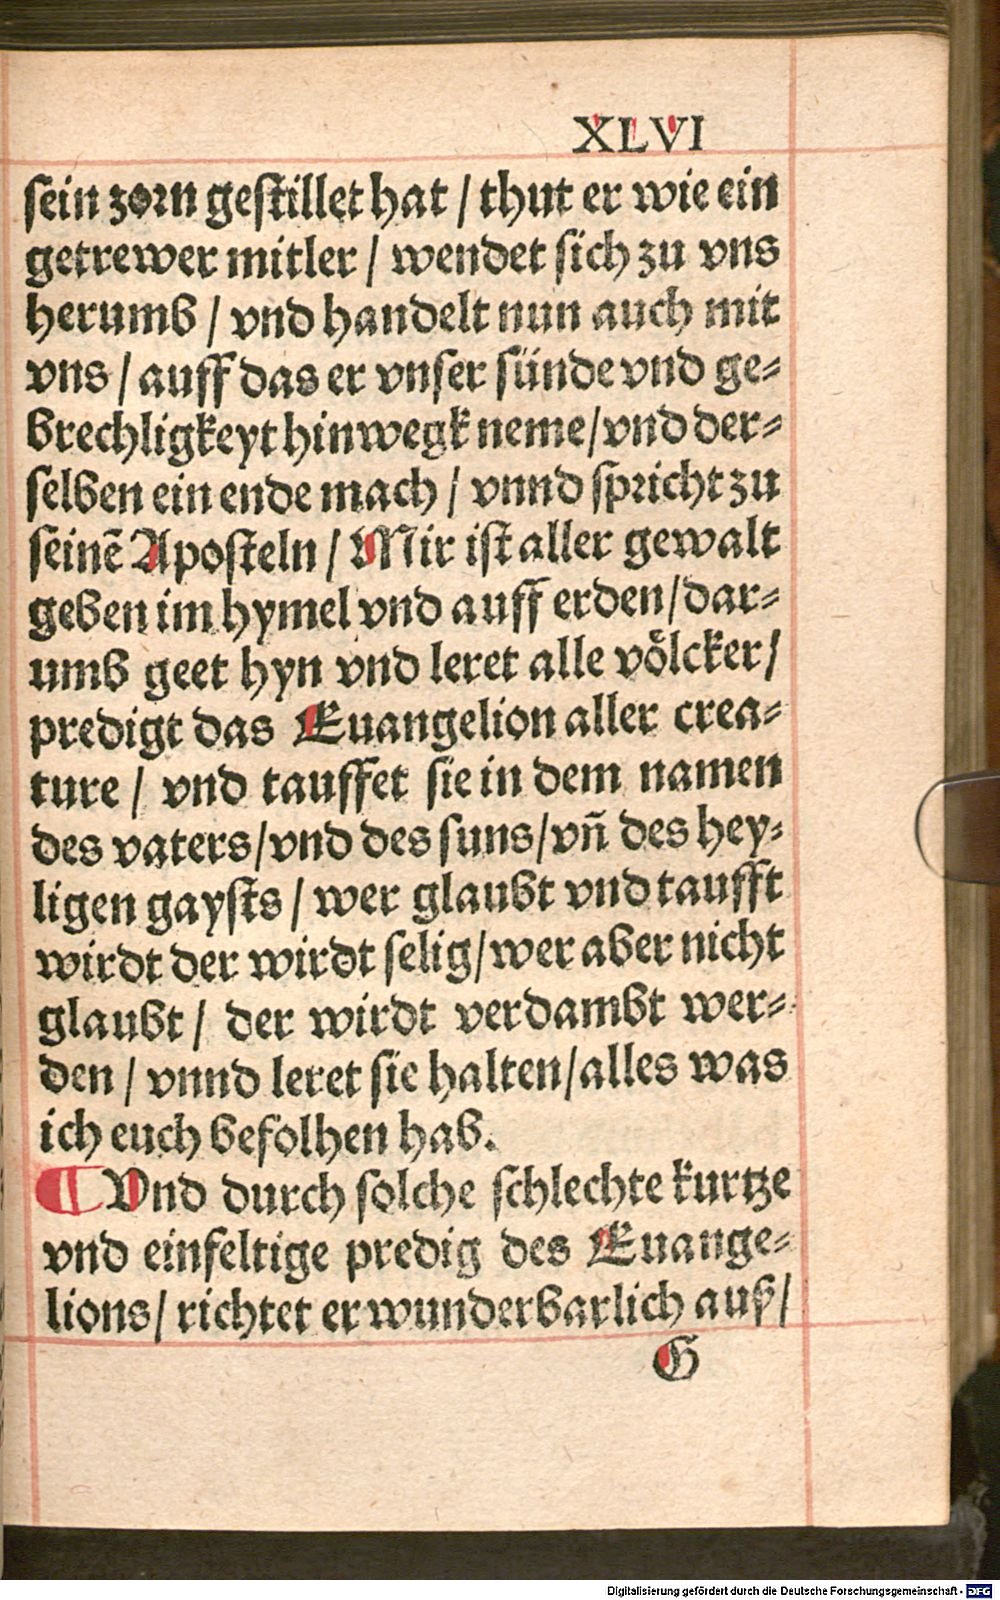 XLVI
sein zorn gestillet hat / thut er wie ein
getrewer mitler / wendet sich zu vns
herumb / vnd handelt nun auch mit
vns / auff das er vnser sünde vnd ge⸗
brechligkeyt hinwegk neme / vnd der⸗
selben ein ende mach / vnnd spricht zu
seinē Aposteln / Mir ist aller gewalt
geben im hymel vnd auff erden / dar⸗
umb geet hyn vnd leret alle võlcker /
predigt das Euangelion aller crea⸗
ture / vnd tauffet sie in dem namen
des vaters / vnd des suns / vñ des hey⸗
ligen gaysts / wer glaubt vnd taufft
wirdt der wirdt selig / wer aber nicht
glaubt / der wirdt verdambt wer⸗
den / vnnd leret sie halten / alles was
ich euch befolhen hab.
¶ Vnd durch solche schlechte kurtze
vnd einfeltige predig des Euange⸗
lions / richtet er wunderbarlich auß /
G
Digitalisierung gefördert durch die Deutsche Forschungsgemeinschaft - DFG